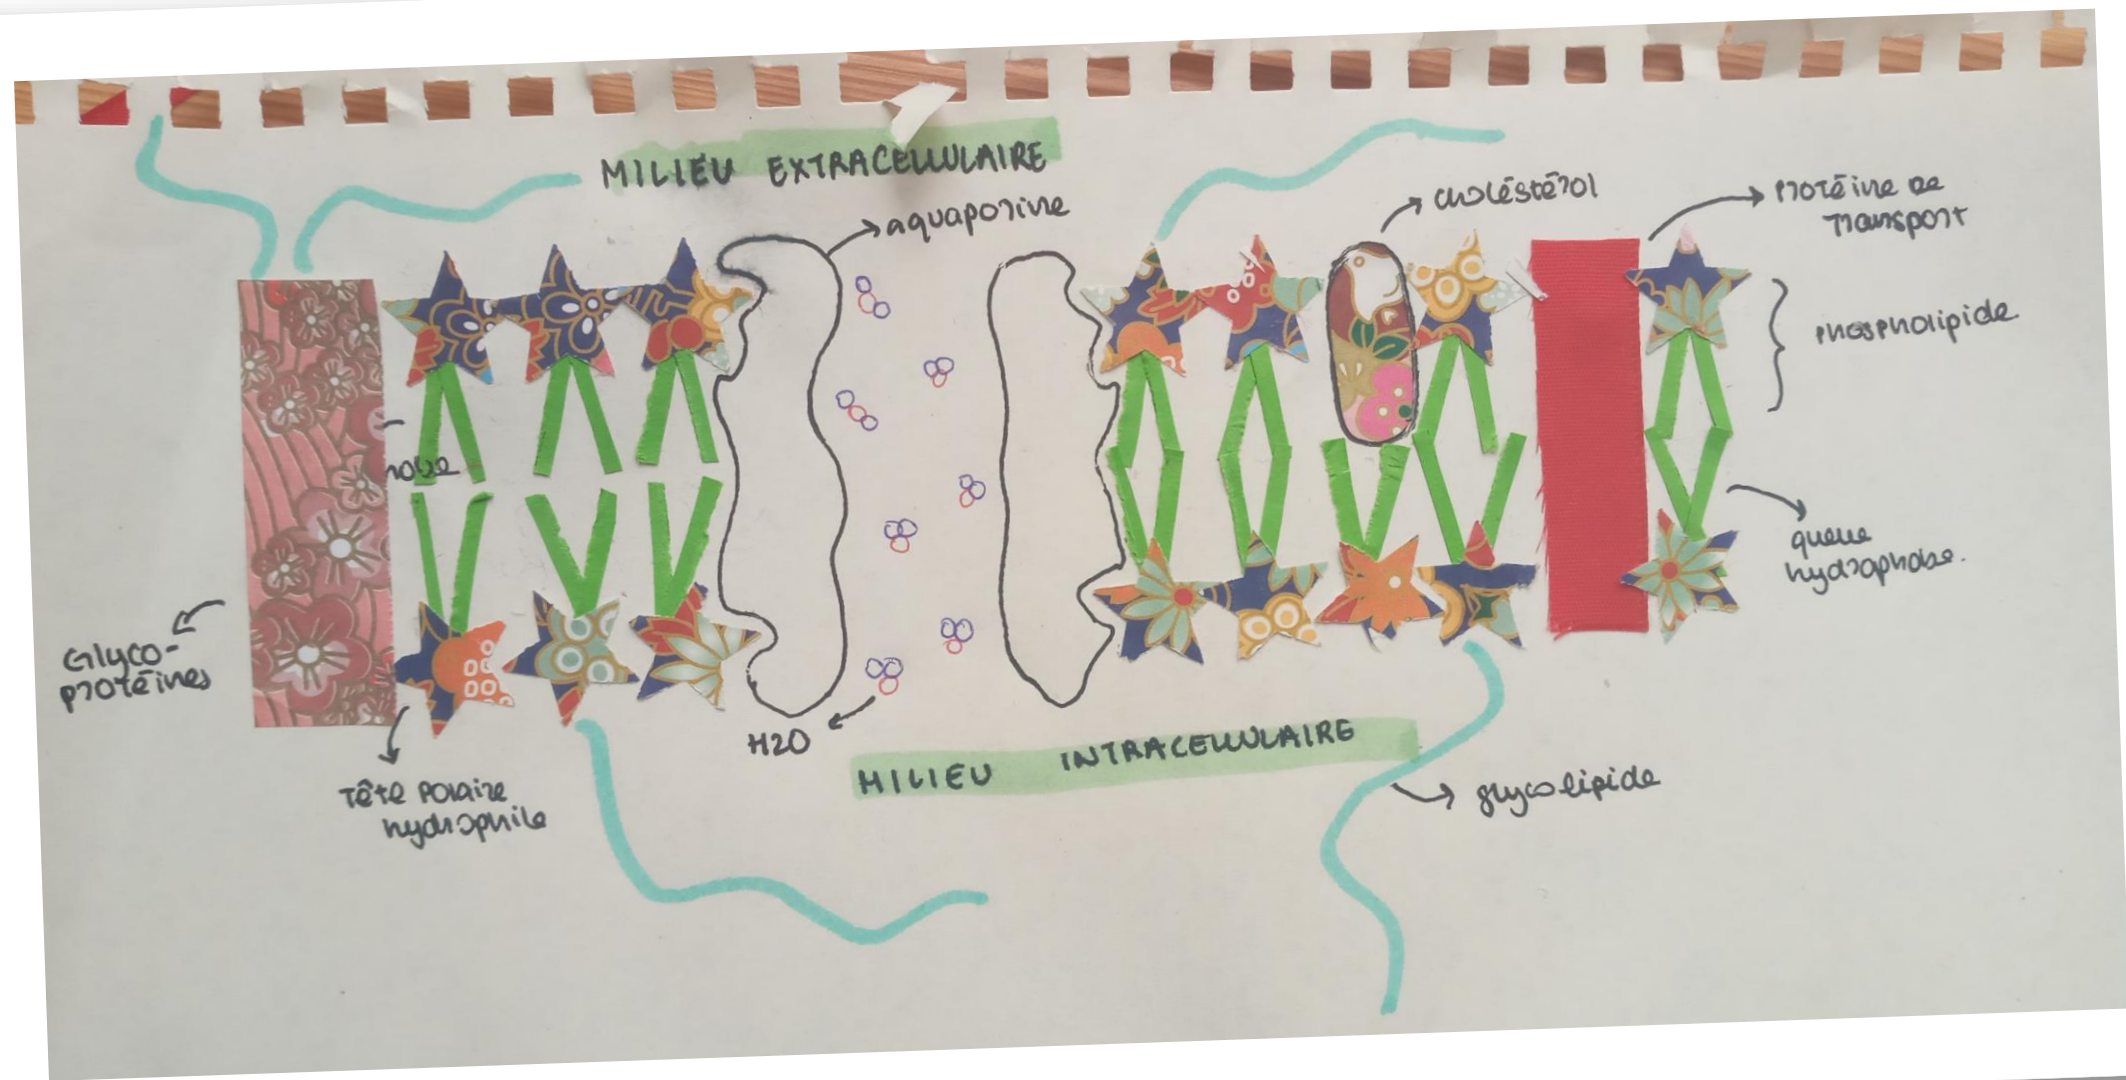 MILIEU EXTRACELLULAIRE
aquaporine
choléstérol
Protéine de
Transport
Phospholipide
queue
hydrophobe.
Glyco-
protéines
Tête Polaire
hydrophile
H2O
MILIEU INTRACELLULAIRE
glycolipide